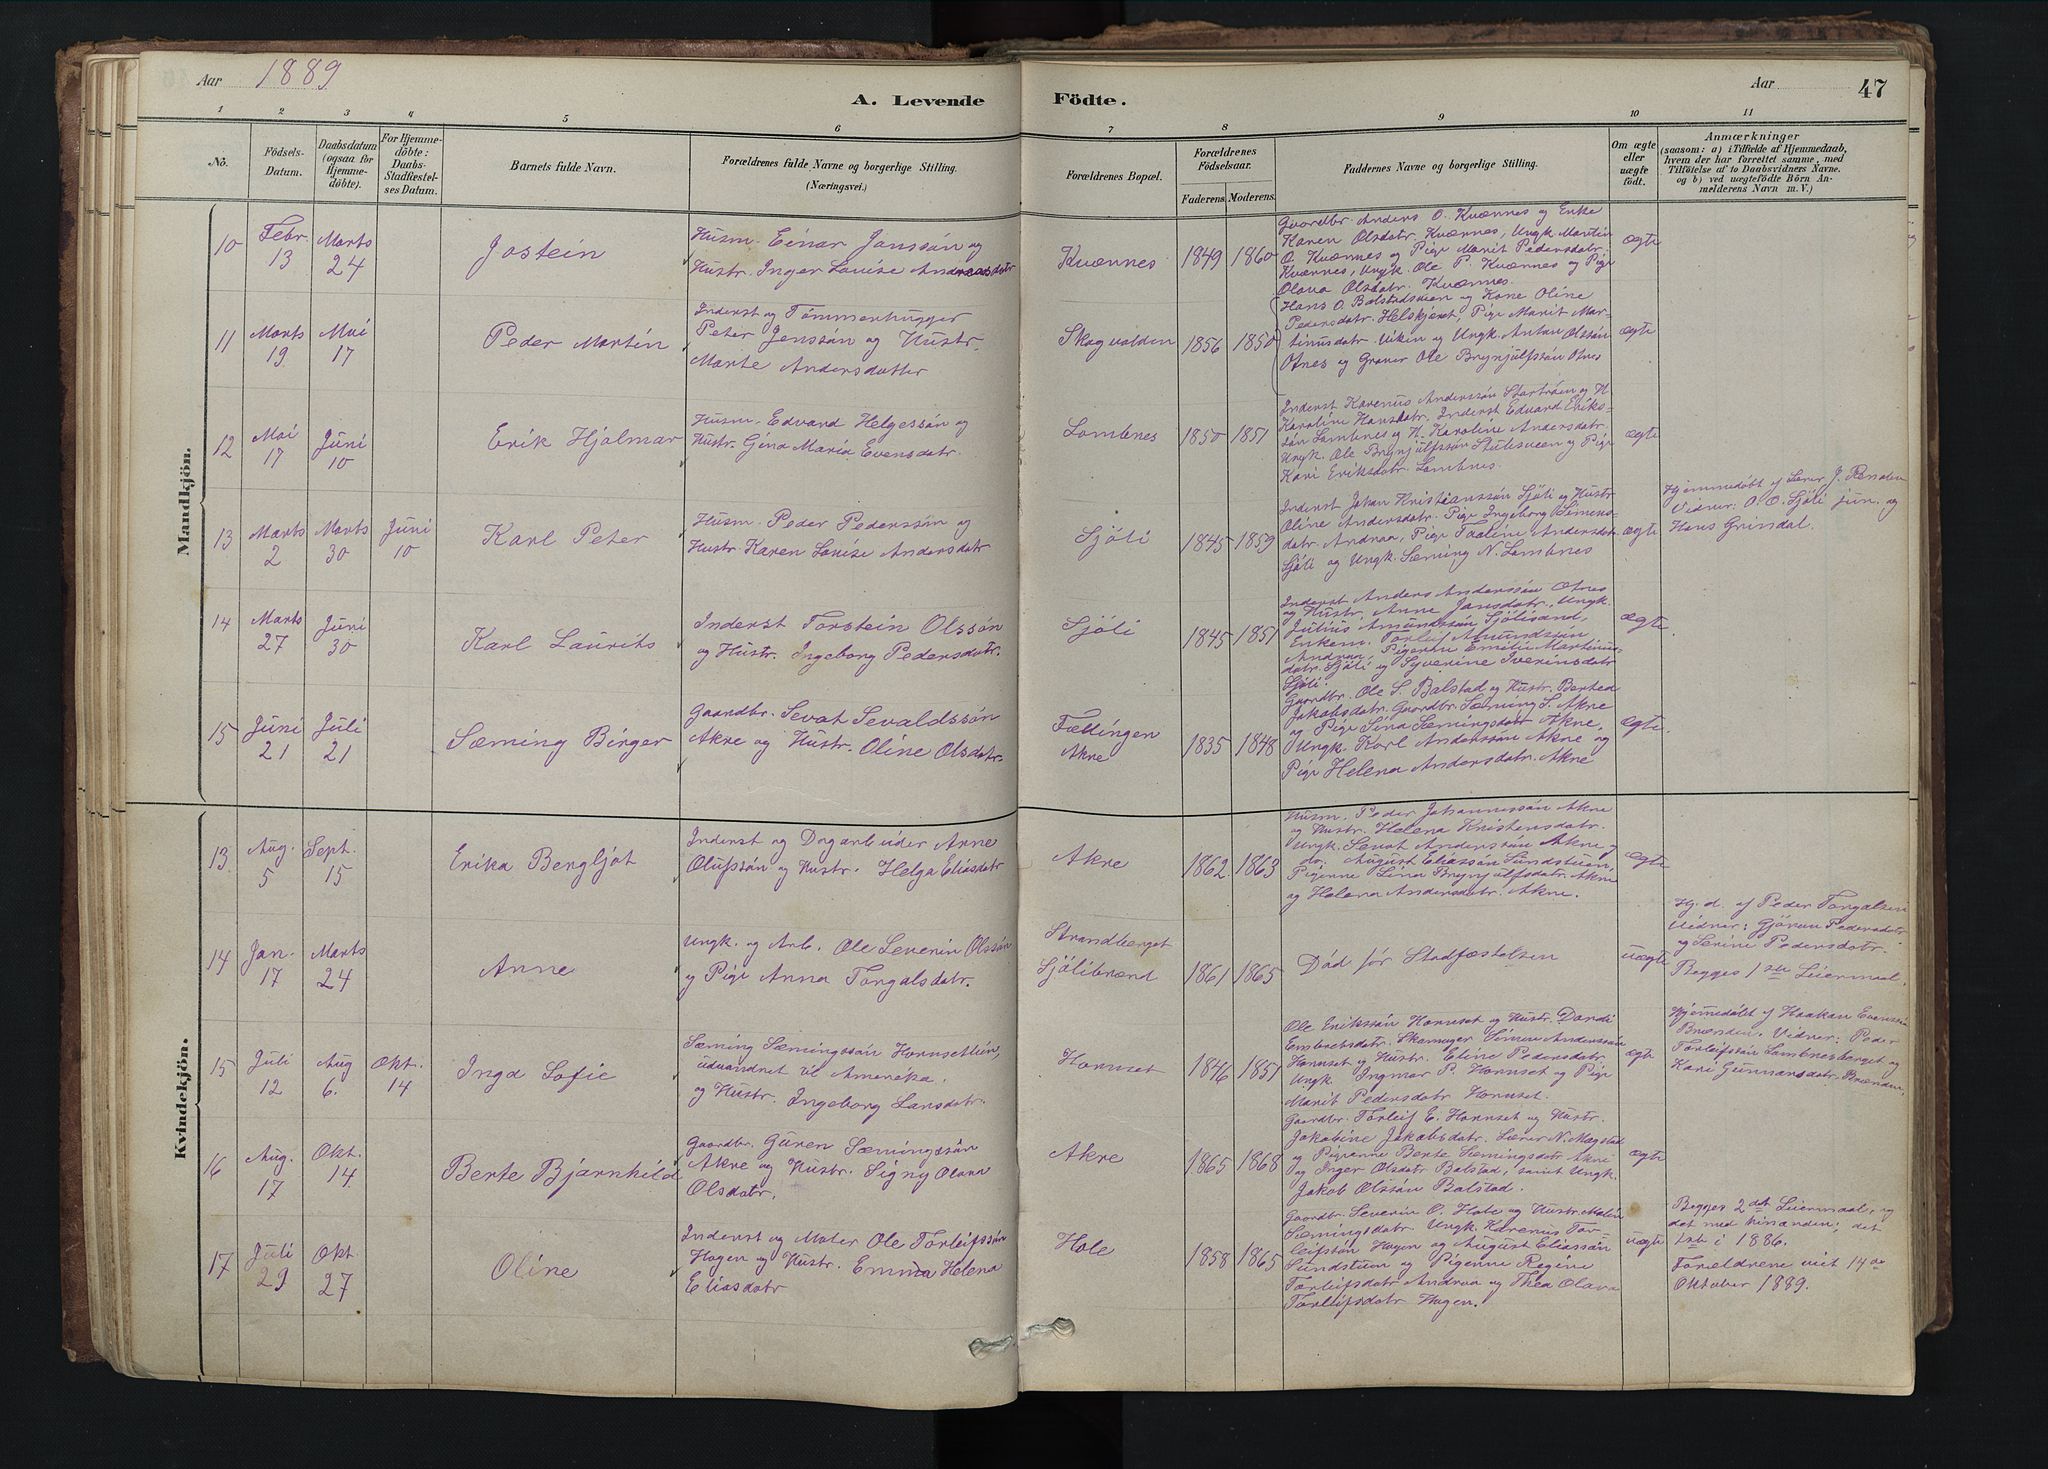 Aar 1889
A. Levende Födte.
Aar 47
1 2 3 4 5 6 7 8 9 10 11
No.
Födsels-
Datum.
Daabsdatum
(ogsaa for
Hjemme-
döbte).
For Hjemme-
döbte:
Daabs-
Stadfæstel-
ses Datum.
Barnets fulde Navn.
Forældrenes fulde Navne og borgerlige Stilling.
(Næringsvei.)
Forældrenes Bopæl.
Forældrenes
Födselsaar.
Faderens. Moderens.
Faddernes Navne og borgerlige Stilling.
Om ægte
eller
uægte
födt.
Anmærkninger
(saasom: a) i Tilfælde af Hjemmedaab,
hvem der har forrettet samme, med
Tilföielse af to Daabsvidners Navne.
og b) ved uægtefödte Börn An-
melderens Navn m. V.)
Mandkjön.
10
Febr.
13
Marts
24
Jostein
Husm. Einar Jonssön og
Hustr. Inger Lovise Andreasdotr
Kvænnes
1849 1860
Gaardbr. Anders O. Kvænnes og Enke
Karen Olsdatr. Kvænnes, Ungk. Martin
O. Kvænnes og Pige Marit Pedersdatr.
Kvænnes, Ungk. Ole P. Kvænnes og Pige
Olava Olsdatr. Kvænnes.
ægte
11
Marts
19
Mai
17
Peder Martin
Inderst og Tömmerhugger
Peter Jenssön og Hustr.
Marte Andersdatter
Skogvolden
1856 1850
Hans O. Balstadsveen og Kone Oline
Pedersdatr. Helskjæret, Pige Marit Mar-
tinusdatr. Viken og Ungk. Anton Olssön
Otnes og Graver Ole Brynjulfssön Otnes
ægte
12
Mai
17
Juni
10
Erik Hjalmar
Husm. Edvard Helgessön og
Hustr. Gina Maria Evensdatr.
Lombnes
1850 1851
Inderst Karenus Anderssön Stortröen og H.
Karoline Hansdatr, Inderst Edvard Eriks-
sön Lombnes og H. Karoline Andersdatr.
Ungk. Ole Brynjulfssön Stulsveen og Pige
Kari Eriksdatr. Lombnes.
ægte
13
Marts
2
Marts
30
Juni
10
Karl Peter
Husm. Peder Pederssön og
Hustr. Karen Lovise Andersdatr
Sjöli
1845 1859
Inderst Johan Kristianssön Sjöli og Hustr
Oline Andersdatr. Pige Ingeborg Simens-
datr. Andraa, Pige Thaline Andersdatr.
Sjöli og Ungk. Sæming N. Lombnes
ægte
Hjemmedöbt af Lærer J. Rendalen
Vidner: O. O. Sjöli jun. og
Hans Grindal.
14
Marts
27
Juni
30
Karl Laurits
Inderst Torstein Olssön
og Hustr. Ingeborg Pedersdatr.
Sjöli
1845 1851
Inderst Anders Anderssön Otnes
og Hustr. Anne Jonsdatr. Ungk.
Julius Amundssön Sjölisand,
Enkem. Torleif Amundssön
Andraa, Pigerne Emilie Martinus-
datr. Sjöli og Syverine Iverinsdatr
Sjöli.
ægte.
15
Juni
21
Juli
21
Sæming Birger
Gaardbr. Sevat Sevaldssön
Akre og Hustr. Oline Olsdatr.
Fællingen
Akre
1835 1848
Gaardbr. Ole S. Balstad og Hustr. Berthea
Jakobsdatr. Gaardbr. Sæming S. Akre
og Pige Sina Sæmingsdatr Akre,
Ungk. Karl Anderssön Akre og
Pige Helena Andersdatr. Akre
ægte.
Kvindekjön.
13
Aug.
5
Sept.
15
Erika Bergljot
Inderst og Dagarbeider Arne
Olufssön og Hustr. Helga Eliasdatr
Akre
1862 1863
Husm. Peder Johannessön Akre
og Hustr. Helena Kristensdatr.
Ungk. Sevat Anderssön Akre og
do. August Eliassön Sundstuen,
Pigerne Lina Brynjulfsdatr. Akre
og Helena Andersdatr. Akre.
ægte
14
Jan.
17
Marts
24
Anne
Ungk. og Arb. Ole Severin Olssön
og Pige Anna Torgalsdatr.
Strandberget
Sjölibrænd
1861 1865
Död för Stadfæstelsen
uægte
Hj. d. af Peder Torgalsen
Vidner: Gjöran Pedersdatr
og Serine Pedersdatr.
Begges 1ste Leiermaal.
15
Juli
12
Aug
6.
Okt.
14
Inga Sofie
Sæming Sæmingssön Hornsettuen,
udvandret til Amerika.
og Hustr. Ingeborg Larsdatr.
Hornset
1846 1851
Ole Erikssön Hornset og Hustr. Dordi
Embretsdatr. Skomager Simen Anderssön
Hornset og Hustr. Eline Pedersdatr.
Ungk. Ingmar P. Hornset og Pige
Marit Pedersdatr Hornset.
ægte
Hjemmedöbt af Haakan Evenssön
Brænden. Vidner: Peder
Torleifssön Lombnesberget og
Kari Gunnarsdatr. Brænden
16
Aug.
17
Okt.
14
Berte Bjarnhild
Gaardbr. Guren Sæmingssön
Akre og Hustr. Signy Olava
Olsdatr.
Akre
1865 1868
Gaardbr. Torleif E. Hornset og Hustr.
Jakobine Jakobsdatr. Lærer N. Magstad
og Pigerne Berte Sæmingsdatr Akre
og Inger Olsdatr Balstad, samt Ungk.
Jakob Olssön Balstad.
ægte
17
Juli
29
Okt.
27
Oline
Inderst og Maler Ole Torleifssön
Hagen og Hustr. Emma Helena
Eliasdatr
Hole
1858 1865
Gaardbr. Severin O. Hole og Hustr. Malin
Sæmingsdatr. Ungk. Karenus Tor-
leifssön Hagen og August Eliassön
Sundstuen og Pigerne Regine
Torleifsdatr Andraa og Thea Olava
Torleifsdatr Hagen.
uægte
Begges 2det Leiermaal, og
det med hinanden; det
1ste i 1886.
Forældrene viet 14de
Oktober 1889.